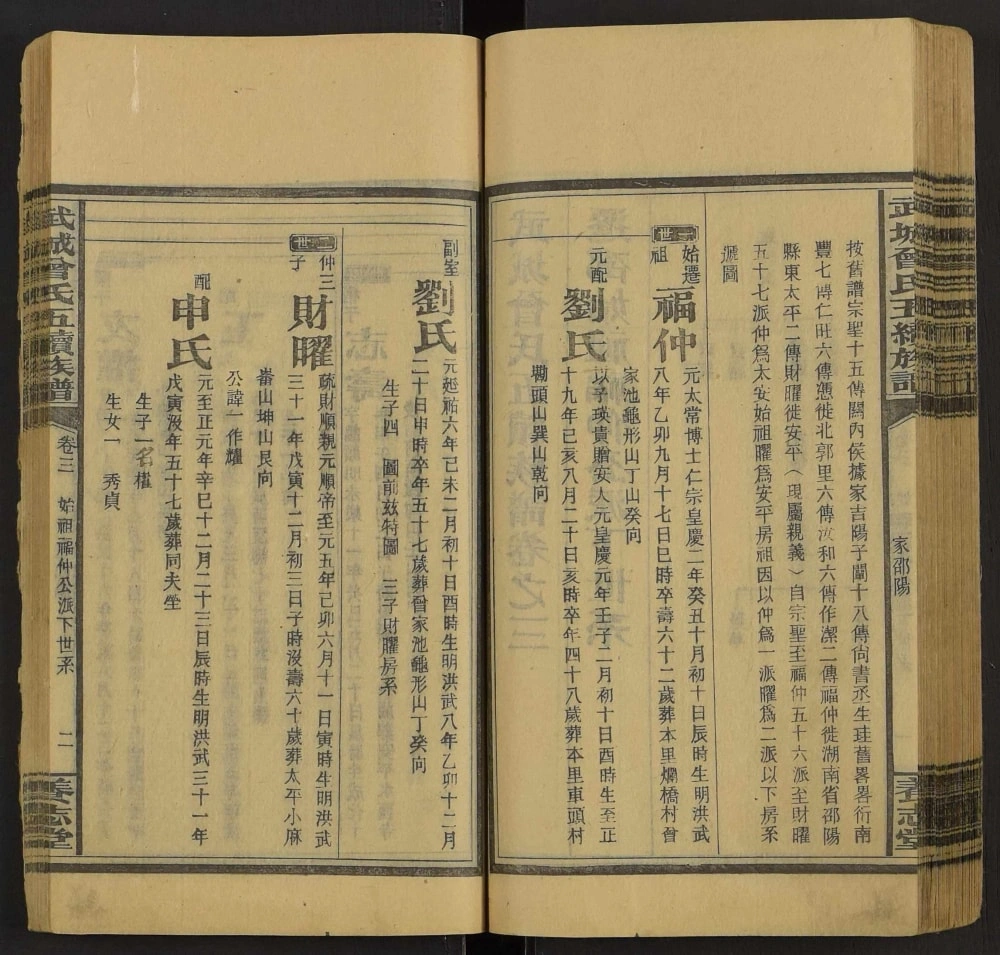 武城曾氏五續族譜
家邵陽
養志堂
按舊譜宗聖十五傳關內侯據家吉陽子闡十八傳尙書丞生珪舊畧畧衍南
豐七傳仁旺六傳憑徙北郭里六傳次和六傳作潔二傳福仲徙湖南省邵陽
縣東太平二傳財曜徙安平（現屬親義）自宗聖至福仲五十六派至財曜
五十七派仲爲太安始祖曜爲安平房祖因以仲爲一派曜爲二派以下房系
遞圖
一世
始遷祖
福仲
元太常博士仁宗皇慶二年癸丑十月初十日辰時生明洪武
八年乙卯九月十七日巳時卒壽六十二歲葬本里爛橋村曾
家池龜形山丁山癸向
元配
劉氏
以子瑛貴贈安人元皇慶元年壬子二月初十日酉時生至正
十九年己亥八月二十日亥時卒年四十八歲葬本里車頭村
墈頭山巽山乾向
副室
劉氏
元延祐六年己未二月初十日酉時生明洪武八年乙卯十二月
二十日申時卒年五十七歲葬曾家池龜形山丁癸向
生子四　圖前茲特圖　三子財曜房系
二世
仲三子
財曜
疏財順親元順帝至元五年己卯六月十一日寅時生明洪武
三十一年戊寅十二月初三日子時沒壽六十歲葬太平小麻
崙山坤山艮向
公諱一作耀
配
申氏
元至正元年辛巳十二月二十三日辰時生明洪武三十一年
戊寅沒年五十七歲葬同夫塋
生子一 名權
生女一　秀貞
武城曾氏五續族譜
卷三　始祖福仲公派下世系　二
養志堂